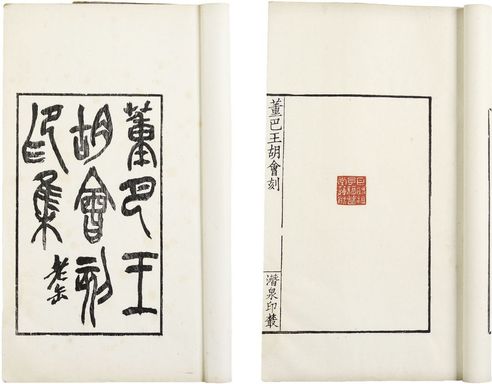 董巴王
胡會刻
印集
老缶
董巴王胡會刻
潛泉印叢